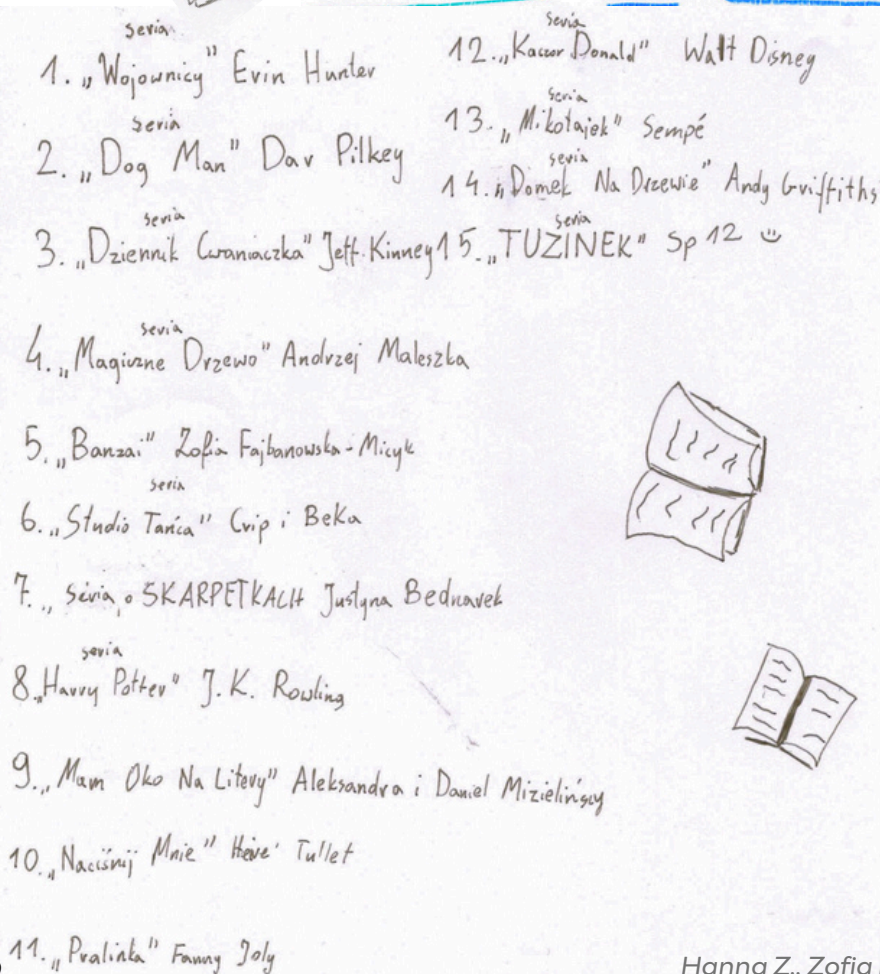 seria
1. „Wojownicy" Erin Hunter
seria
2. „Dog Man" Dav Pilkey
seria
3. „Dziennik Cwaniaczka" Jeff Kinney
seria
4. „Magiczne Drzewo" Andrzej Maleszka
5. „Banzai" Zofia Fajbanowska-Micyk
seria
6. „Studio Tańca" Crip i BeKa
7. „ seria o SKARPETKACH Justyna Bednarek
seria
8. „Harry Potter" J. K. Rowling
9. „Mam Oko Na Litery" Aleksandra i Daniel Mizielińscy
10. „Naciśnij Mnie" Hervé Tullet
11. „Pralinka" Fanny Joly
seria
12. „Kaczor Donald" Walt Disney
seria
13. „Mikołajek" Sempé
seria
14. „Domek Na Drzewie" Andy Griffiths
seria
15. „TUZINEK" Sp 12
Hanna Z., Zofia